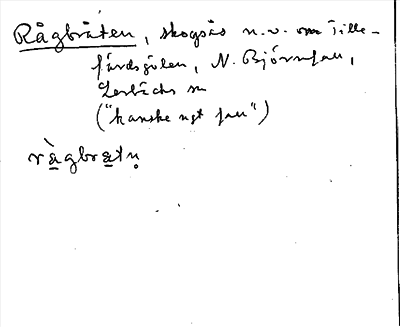 Rågbråten, skogsås n.v. om Tille-
färdsgölen, N. Björnfall,
Lerbäcks sn
("kanske ngt fall")
ràgbratn̥